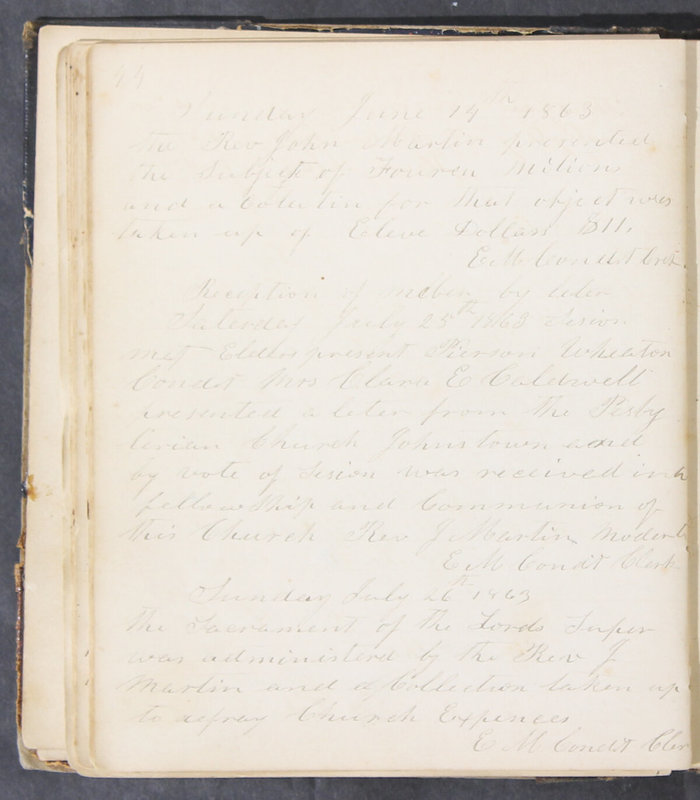 44
Sunday June 14th 1863
the Rev John Martin presented
the Subject of Fouren Milions
and a Colectin for that object was
taken up of Eleve Dollars $11,
E. M. Condit Clerk
Reception of member by leter
Saterday July 25th 1863 Sesion
met Elders present Pierson Wheaton
Condit Mrs Clara E Caldwell
presented a leter from the Presby
terian Church Johnstown and
by vote of Sesion was received in
fellowship and Communion of
this Church Rev J Martin Modert
E M Condit Clerk
Sunday July 26th 1863
the Sacrament of the Lords Super
was administerd by the Rev J
Martin and a Collection taken up
to defray Church Expences
E M Condit Cler